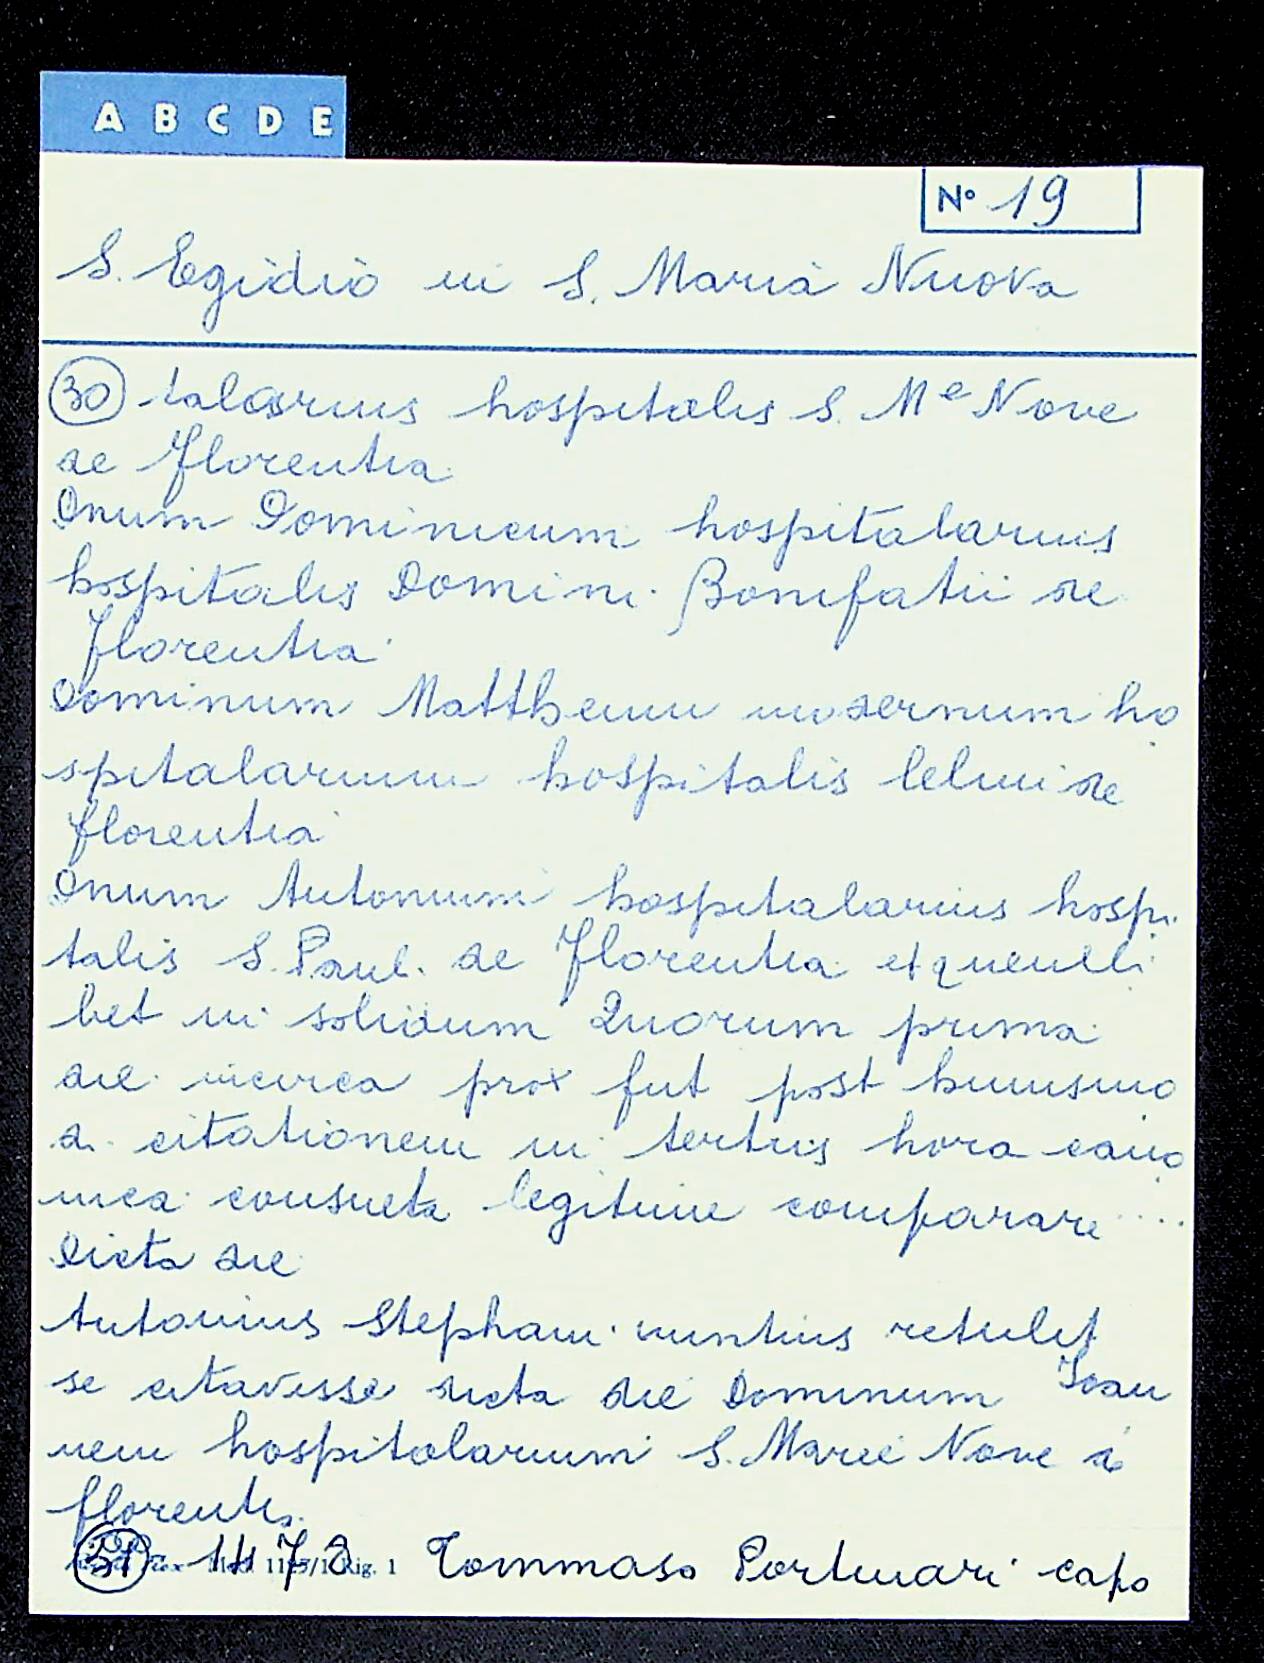 A B C D E
Nº 19
S. Egidio in S. Maria Nuova
30 talarius hospitalis S. Mᵉ Nove
de Florentia
Dnum Dominicum hospitalarius
hospitalis Domini. Bonifatii de
florentia
Dominum Mattheum modernum ho
spitalarium hospitalis lelmi de
florentia
Dnum Antonium hospitalarius hospi
talis S. Paul. de Florentia et quemli
bet in solidum Quorum prima
die prox fut post huiusmo
d. citationem in tertiis hora cano
nica consueta legitime comparare ....
Dicta die
Antonius Stephani nuntius retulit
se citavisse dicta die Dominum Ioan
nem hospitalarium S. Marie Nove d
florentis.
31 1472 Tommaso Portinari capo
1 Rig. 1